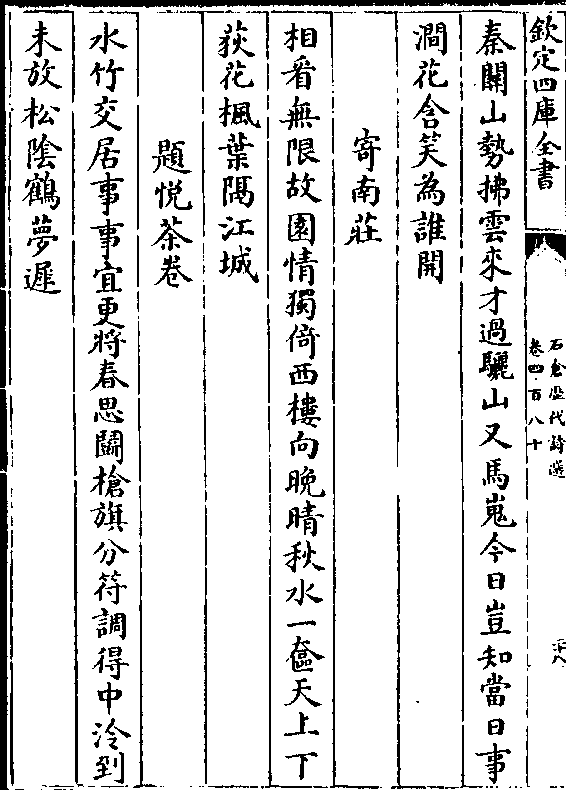 欽定四庫全書
石倉歷代詩選
卷四百八十
秦關山勢拂雲來才過驪山又馬嵬今日豈知當日事
澗花含笑為誰開
寄南莊
相看無限故園情獨倚西樓向晚晴秋水一奩天上下
荻花楓葉隔江城
題悅茶卷
水竹交居事事宜更將春思鬭槍旗分符調得中泠到
未放松陰鶴夢遲